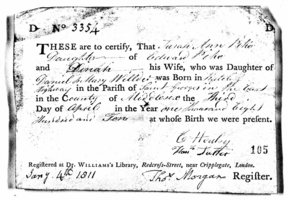 D No 3354 D
THESE are to certify, That Ann
Daughter of Edward
and Dinah his Wife, who was Daughter of
Daniel & Mary was Born in
Highway in the Parish of Saint Georges in the East
in the County of Middlesex the Third
Day of April in the Year one thousand Eight
Hundred and at whose Birth we were present.
105
Registered at Dr. WILLIAMS's Library, Redcross-Street, near Cripplegate, London.
Jany 4th 1811 Thos Morgan Register.